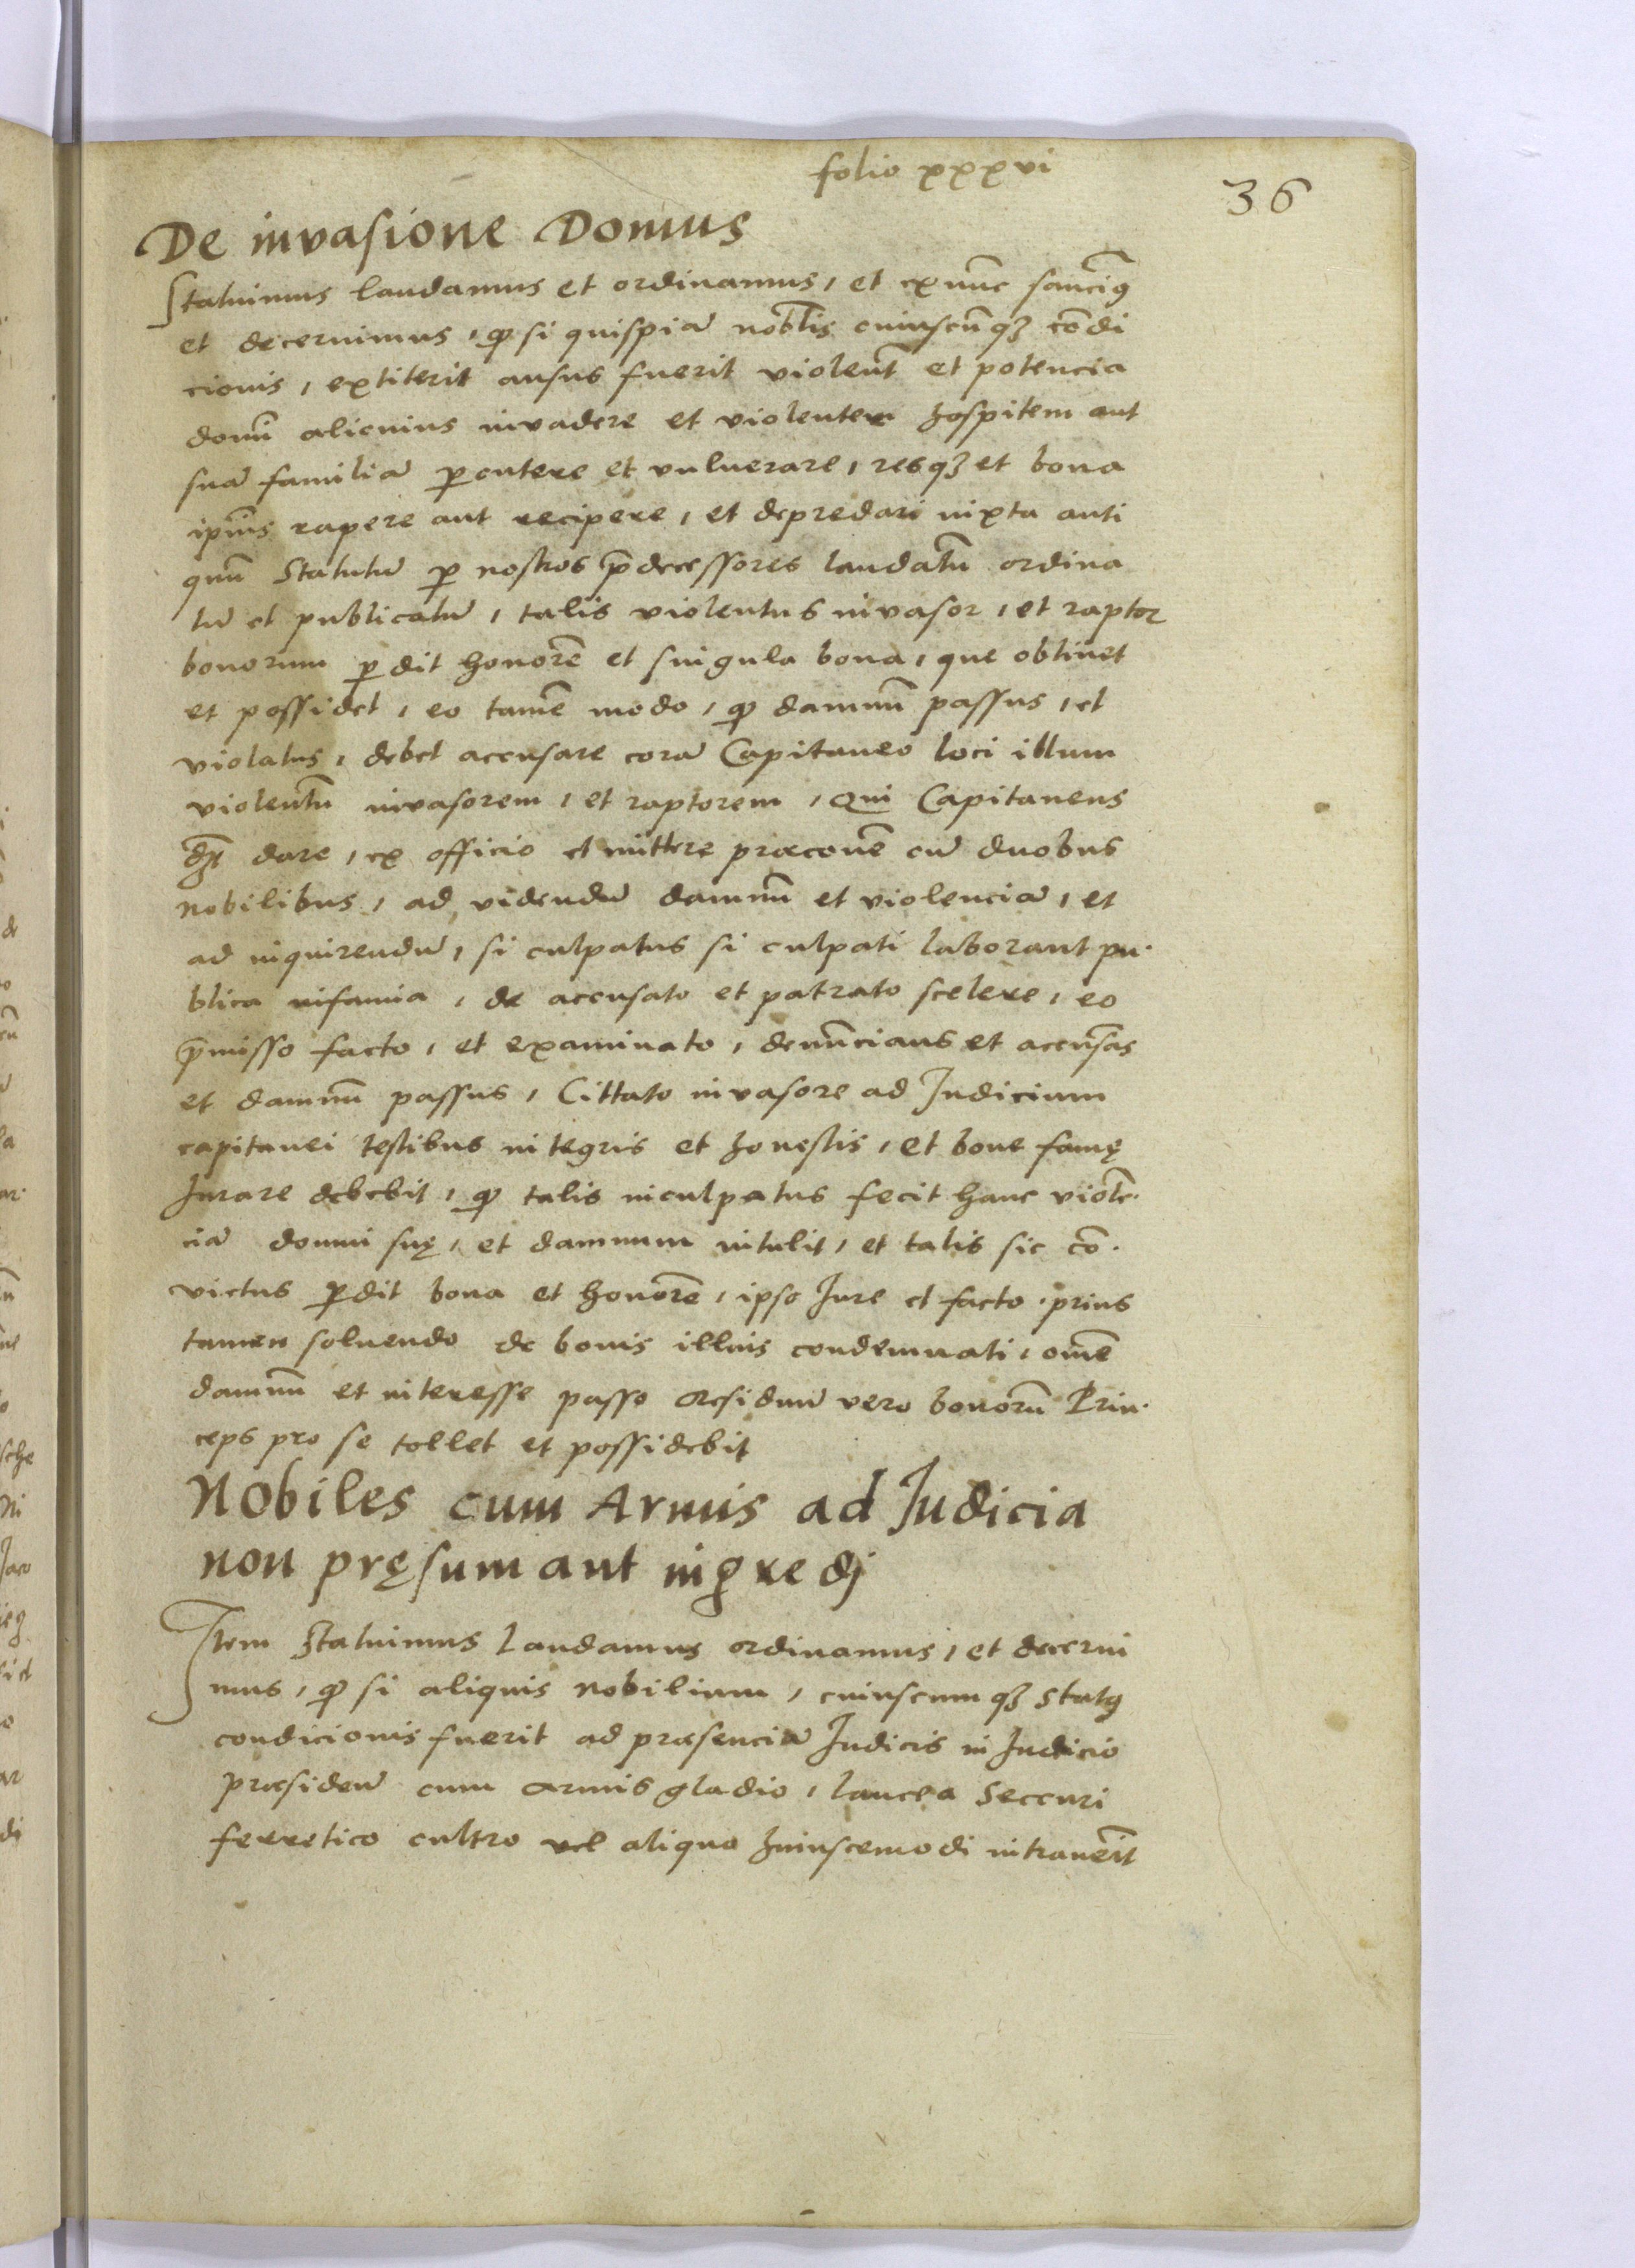 folio xxxvi
36
De invasione Domus
Statuimus laudamus et ordinamus, et ex nūc sancim9
et decernimus, ꝙ si quispiā nobĺis cuiuscūqꝫ cōdi
cionis, extiterit ausus fuerit violenť et potencia
domū alicuius invadere et violenter hospitem aut
suā familiā ꝑcutere et vulnerare, resqꝫ et bona
ipīus rapere aut recipere, et depredari iuxta anti
quū Statutū ꝑ nostros p̄decessores laudatū ordina
tū et publicatū, talis violentus invasor, et raptor
bonorum ꝑdit honorē et singula bona, que obtinet
et possidet, eo tamē modo, ꝙ damnū passus, et
violatus, debet accusare corā Capitaneo loci illum
violentū invasorem, et raptorem, Qui Capitaneus
dꝫt dare, ex officio et mittere præconē cū duobus
nobilibus, ad videndū damnū et violenciā, et
ad inquirendū, si culpatus si culpati laborant pu·
blica infamia, de accusato et patrato scelere, eo
p̄misso facto, et examinato, denūcians et accusās
et damnū passus, Cittato invasore ad Judicium
capitanei testibus integris et honestis, et bone famę
Jurare debebit, ꝙ talis inculpatus fecit hanc violē·
ciā domui suę, et damnum intulit, et talis sic cō·
victus ꝑdit bona et honorē, ipso Jure et facto · prius
tamen soluendo de bonis illius condemnati, omē
damnū et interesse passo Residuū vero bonorū Prin·
ceps pro se tollet et possidebit
Nobiles cum Armis ad Judicia
non pręsumant ingredj
Item Statuimus Laudamus ordinamus, et decerni
mus, ꝙ si aliquis nobilium, cuiuscumqꝫ stat9
condicionis fuerit ad præsenciā Judicis in Judicio
præsidenť cum armis gladio, lancea Seccuri
ferretico cultro vel aliquo huiuscemodi intrauerīt